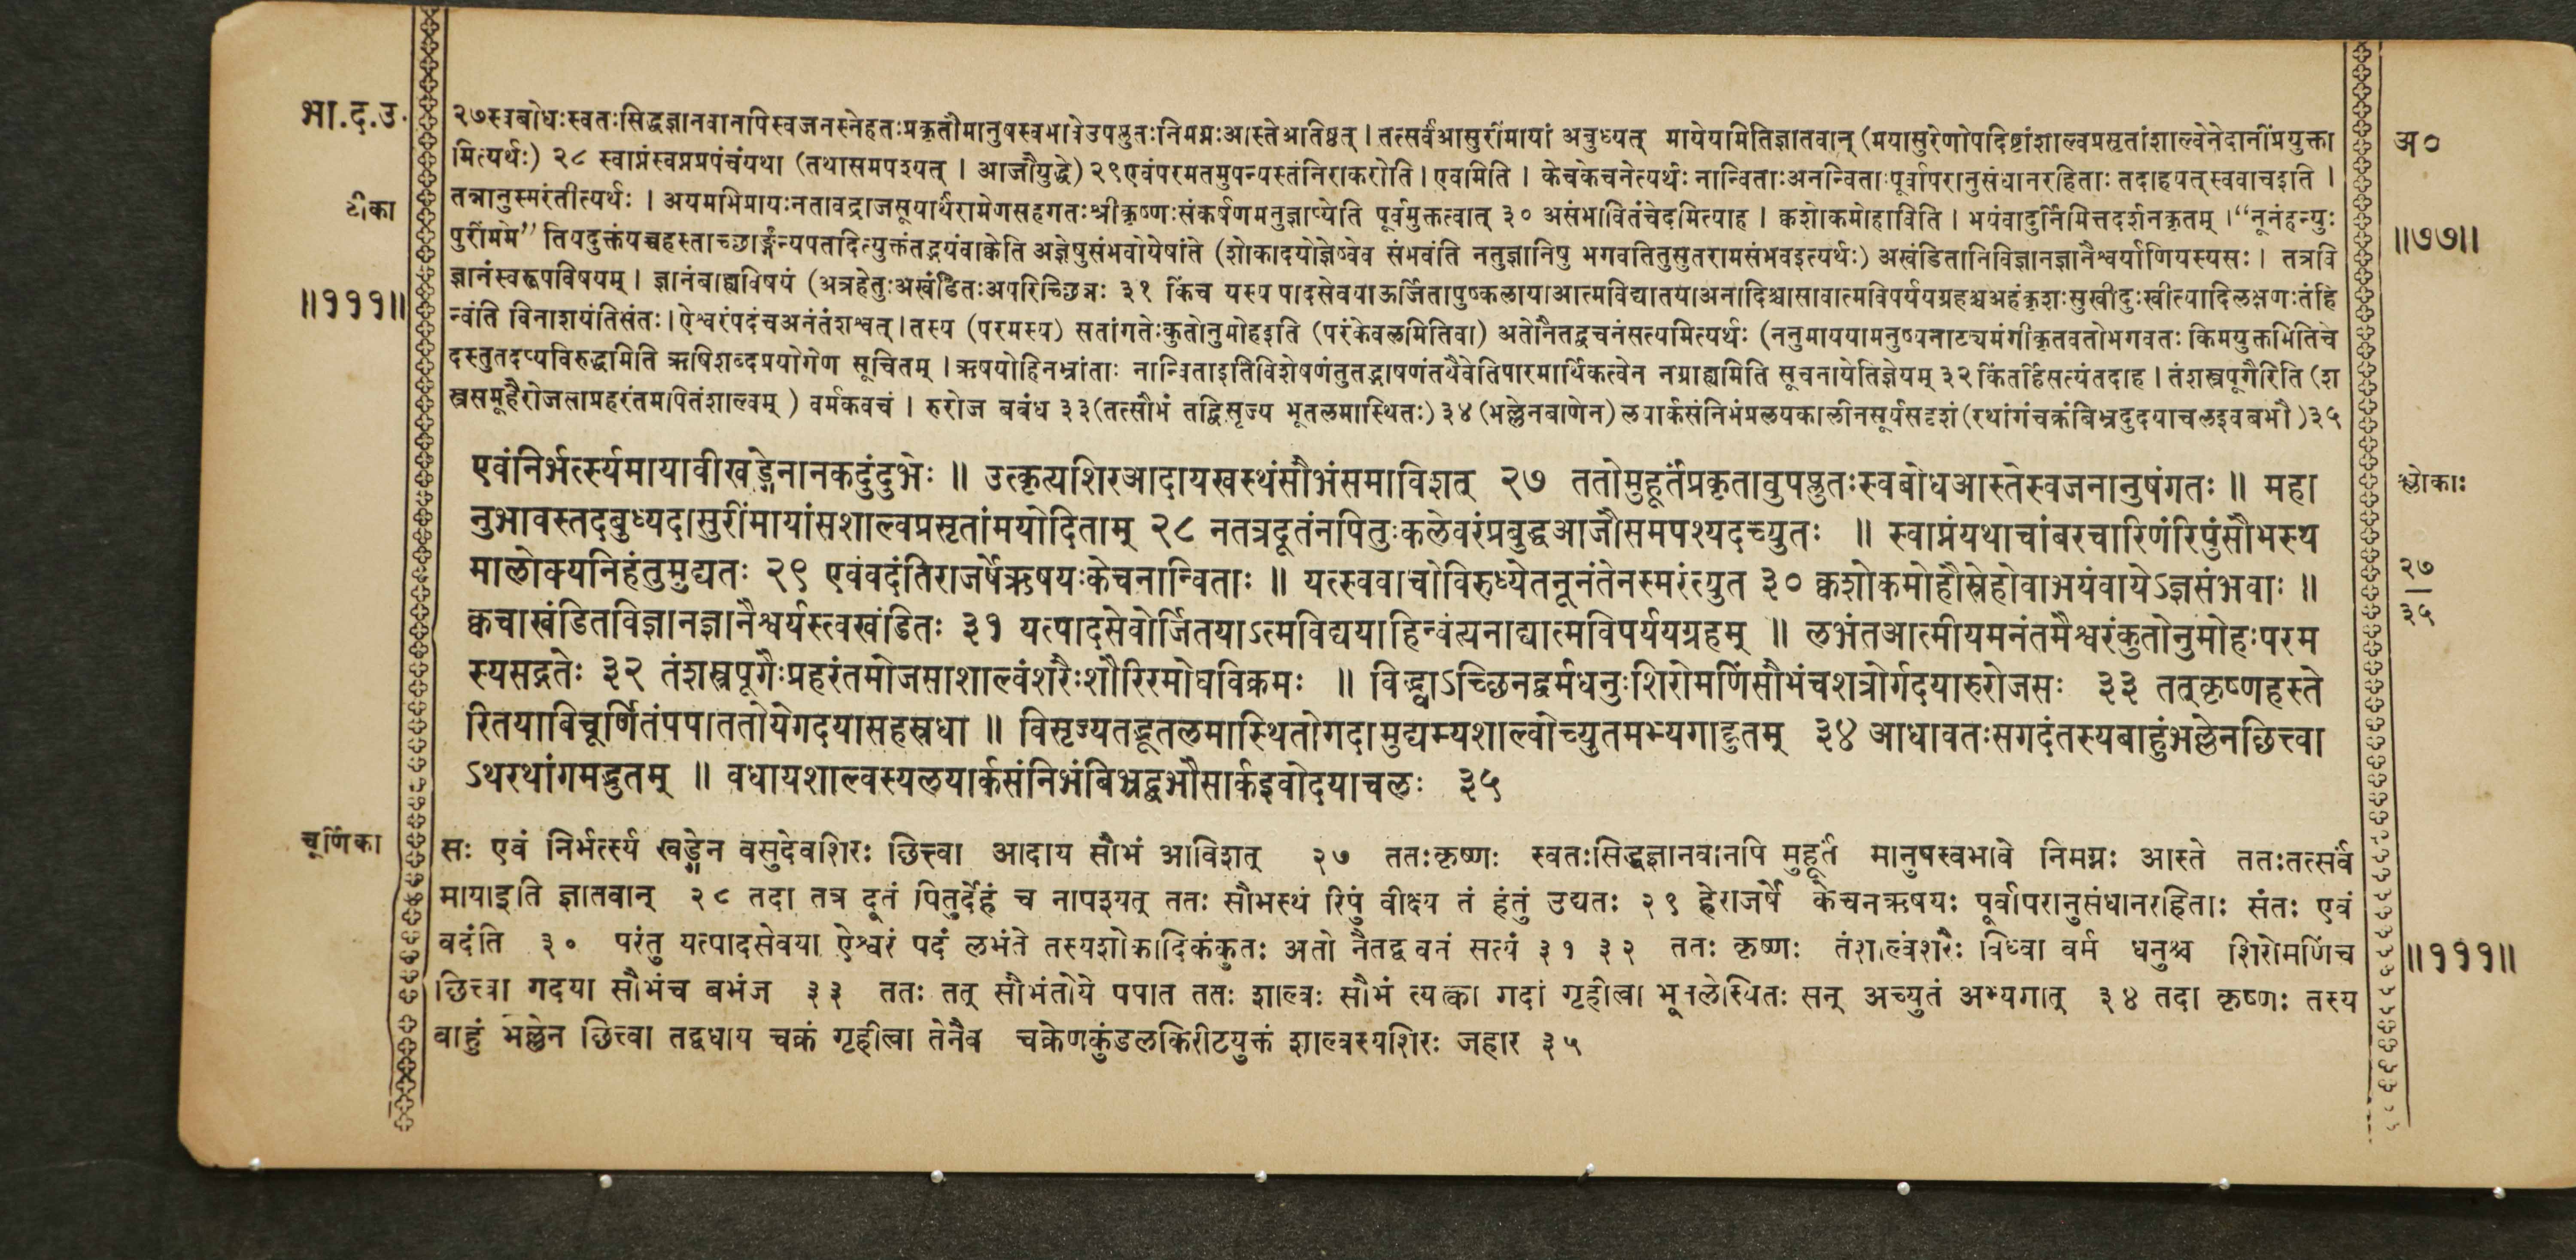 भा.द.उ.
२७स्वबोधःस्वतःसिद्धज्ञानवानपिस्वजनस्नेहतःप्रकृतौमानुषस्वभावेउपप्लुतःनिमग्नःआस्तेअतिष्ठत् । तत्सर्वंआसुरींमायां अबुध्यत् मायेयमितिज्ञातवान् (मयासुरेणोपदिष्टांशाल्वप्रसृतांशाल्वेनेदानींप्रयुक्ता
अ०
मित्यर्थः) २८ स्वाप्नंस्वप्नप्रपंचंयथा (तथासमपश्यत् । आजौयुद्धे) २९एवंपरमतमुपन्यस्तंनिराकरोति । एवमिति । केचकेचनेत्यर्थः नान्विताःअनन्विताःपूर्वापरानुसंधानरहिताः तदाहयत्स्ववाचइति ।
टीका
तन्नानुस्मरंतीत्यर्थः । अयमभिप्रायःनतावद्राजसूयार्थंरामेणसहगतःश्रीकृष्णःसंकर्षणमनुज्ञाप्येति पूर्वमुक्तत्वात् ३० असंभावितंचेदमित्याह । क्वशोकमोहाविति । भयंवादुर्निमित्तदर्शनकृतम् । “नूनंहन्युः
पुरींमम” तियदुक्तंयच्चहस्ताच्छार्ङ्गंन्यपतदित्युक्तंतद्भयंवाक्केति अज्ञेषुसंभवोयेषांते (शोकादयोज्ञेष्वेव संभवंति नतुज्ञानिषु भगवतितुसुतरामसंभवइत्यर्थः) अखंडितानिविज्ञानज्ञानैश्वर्याणियस्यसः । तत्रवि
॥७७॥
ज्ञानंस्वरूपविषयम् । ज्ञानंबाह्यविषयं (अत्रहेतुःअखंडितःअपरिच्छिन्नः ३१ किंच यस्य पादसेवयाऊर्जितापुष्कलायाआत्मविद्यातयाअनादिश्चासावात्मविपर्ययग्रहश्चअहंकृशःसुखीदुःखीत्यादिलक्षणःतंहि
॥१११॥
न्वंति विनाशयंतिसंतः । ऐश्वरंपदंचअनंतंशश्वत् । तस्य (परमस्य) सतांगतेःकुतोनुमोहइति (परंकेवलमितिवा) अतोनैतद्वचनंसत्यमित्यर्थः (ननुमाययामनुष्यनाट्यमंगीकृतवतोभगवतः किमयुक्तमितिचे
दस्तुतदप्यविरुद्धमिति ऋषिशब्दप्रयोगेण सूचितम् । ऋषयोहिनभ्रांताः नान्विताइतिविशेषणंतुतद्भाषणंतथैवेतिपारमार्थिकत्वेन नग्राह्यमिति सूचनायेतिज्ञेयम् ३२ किंतर्हिसत्यंतदाह । तंशस्त्रपूगैरिति (श
स्त्रसमूहैरोजसाप्रहरंतमपितंशाल्वम् ) वर्मकवचं । रुरोज बबंध ३३ (तत्सौभं तद्विसृज्य भूतलमास्थितः) ३४ (भल्लेनबाणेन) लयार्कसंनिभंप्रलयकालीनसूर्यसदृशं (रथांगंचक्रंबिभ्रदुदयाचलइवबभौ) ३५
एवंनिर्भर्त्स्यमायावीखड्गेनानकदुंदुभेः ॥ उत्कृत्यशिरआदायखस्थंसौभंसमाविशत् २७ ततोमुहूर्तंप्रकृतावुपप्लुतःस्वबोधआस्तेस्वजनानुषंगतः ॥ महा
श्लोकाः
नुभावस्तदबुध्यदासुरींमायांसशाल्वप्रसृतांमयोदिताम् २८ नतत्रदूतंनपितुःकलेवरंप्रबुद्धआजौसमपश्यदच्युतः ॥ स्वाप्नंयथाचांबरचारिणंरिपुंसौभस्थ
मालोक्यनिहंतुमुद्यतः २९ एवंवदंतिराजर्षेऋषयःकेचनान्विताः ॥ यत्स्ववाचोविरुध्येतनूनंतेनस्मरंत्युत ३० क्वशोकमोहौस्नेहोवाभयंवायेऽज्ञसंभवाः ॥
२७
३५
क्वचाखंडितविज्ञानज्ञानैश्वर्यस्त्वखंडितः ३१ यत्पादसेवोर्जितयाऽत्मविद्ययाहिन्वंत्यनाद्यात्मविपर्ययग्रहम् ॥ लभंतआत्मीयमनंतमैश्वरंकुतोनुमोहःपरम
स्यसद्गतेः ३२ तंशस्त्रपूगैःप्रहरंतमोजसाशाल्वंशरैःशौरिरमोघविक्रमः ॥ विद्ध्वाऽच्छिनद्वर्मधनुःशिरोमणिंसौभंचशत्रोर्गदयारुरोजसः ३३ तत्कृष्णहस्ते
रितयाविचूर्णितंपपाततोयेगदयासहस्रधा ॥ विसृज्यतद्भूतलमास्थितोगदामुद्यम्यशाल्वोच्युतमभ्यगाद्द्रुतम् ३४ आधावतःसगदंतस्यबाहुंभल्लेनछित्त्वा
ऽथरथांगमद्भुतम् ॥ वधायशाल्वस्यलयार्कसंनिभंबिभ्रद्बभौसार्कइवोदयाचलः ३५
चूर्णिका
सः एवं निर्भर्त्स्य खड्गेन वसुदेवशिरः छित्त्वा आदाय सौभं आविशत् २७ ततःकृष्णः स्वतःसिद्धज्ञानवानपि मुहूर्तं मानुषस्वभावे निमग्नः आस्ते ततःतत्सर्वं
मायाइति ज्ञातवान् २८ तदा तत्र दूतं पितुर्देहं च नापश्यत् ततः सौभस्थं रिपुं वीक्ष्य तं हंतुं उद्यतः २९ हेराजर्षे केचनऋषयः पूर्वापरानुसंधानरहिताः संतः एवं
वदंति ३० परंतु यत्पादसेवया ऐश्वरं पदं लभंते तस्यशोकादिकंकुतः अतो नैतद्वचनं सत्यं ३१ ३२ ततः कृष्णः तंशाल्वंशरैः विध्वा वर्म धनुश्च शिरोमणिंच
॥१११॥
छित्त्वा गदया सौभंच बभंज ३३ ततः तत् सौभंतोये पपात ततः शाल्वः सौभं त्यक्त्वा गदां गृहीत्वा भूतलेस्थितः सन् अच्युतं अभ्यगात् ३४ तदा कृष्णः तस्य
बाहुं भल्लेन छित्त्वा तद्वधाय चक्रं गृहीत्वा तेनैव चक्रेणकुंडलकिरीटयुक्तं शाल्वस्यशिरः जहार ३५